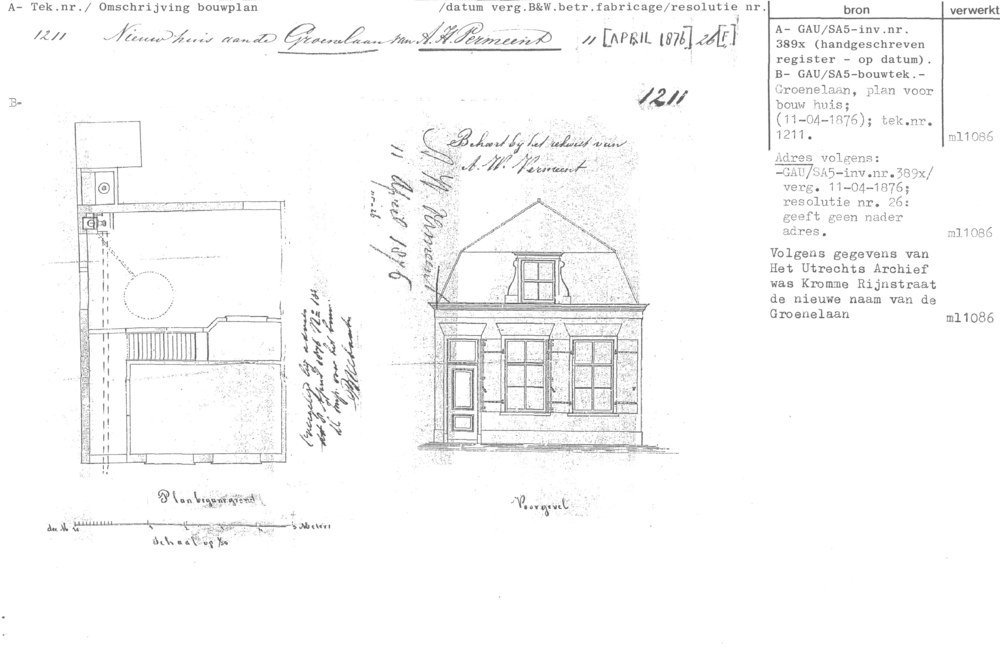 A- Tek.nr./ Omschrijving bouwplan /datum verg.B&W.betr.fabricage/resolutie nr.
1211 Nieuw huis aan de Groenelaan van A. H. Permeent 11 [APRIL 1876] 26 [F]
bron
verwerkt
A- GAU/SA5-inv.nr.
389x (handgeschreven
register - op datum).
B- GAU/SA5-bouwtek.-
Groenelaan, plan voor
bouw huis;
(11-04-1876); tek.nr.
1211.
ml1086
Adres volgens:
-GAU/SA5-inv.nr.389x/
verg. 11-04-1876;
resolutie nr. 26:
geeft geen nader
adres.
ml1086
Volgens gegevens van
Het Utrechts Archief
was Kromme Rijnstraat
de nieuwe naam van de
Groenelaan
ml1086
B-
1211
Behoort bij het rekwest van
A. W. Vermeent
11 April 1876
no 26
Plan beganegrond
Schaal op
Voorgevel